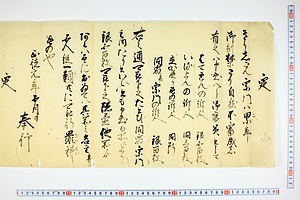 定
きりしたん宗門は累年
御制禁たり自然不審成もの
有之ハ申出へし御褒美として
はてれんの訴人 銀五百枚
いるまんの訴人 銀三百枚
立かへり者の訴人 同断
同宿并宗門の訴人 銀百枚
右之通下さるへしたとひ同宿宗門
之内たりといふとも申出る品により
銀五百枚下さるへし隠置他所より
あらはるゝにおゐてハ其所之名主并
五人組迄一類共に可被行罪科
もの也
正徳元年五月日
奉行
定